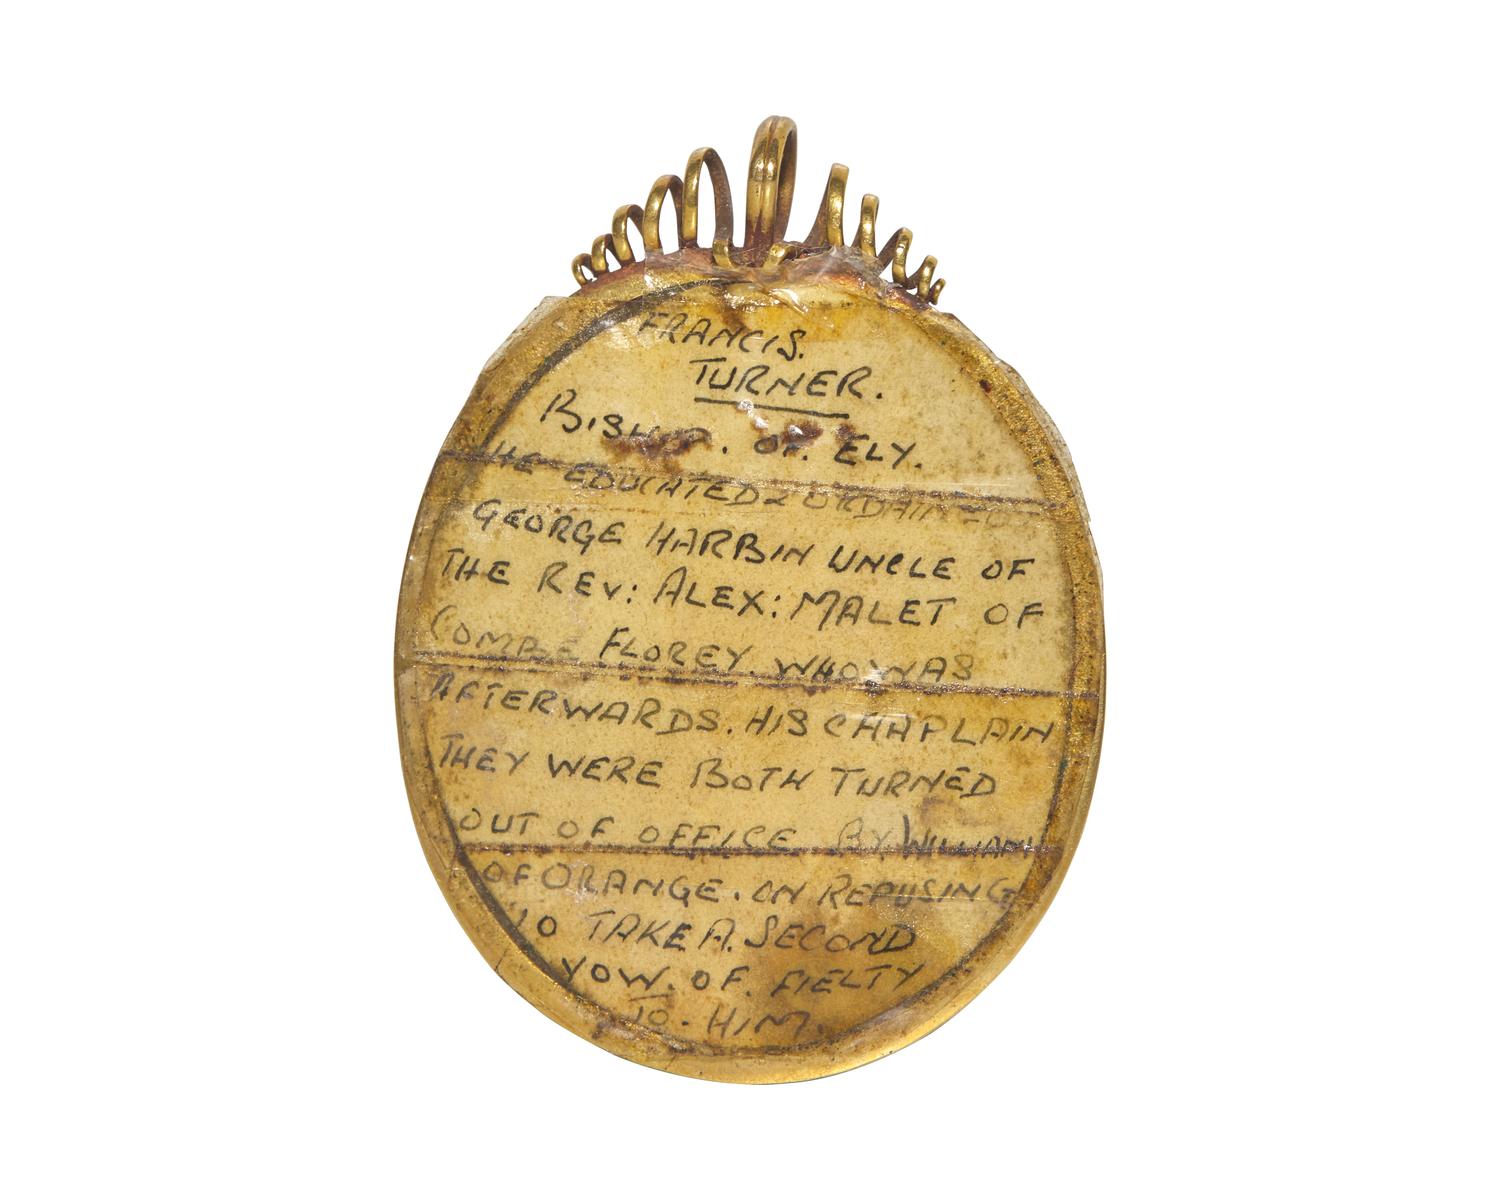 FRANCIS.
TURNER.
BISHOP. OF. ELY.
HE EDUCATED &
GEORGE HARBIN UNCLE OF
THE REV: ALEX: MALET OF
COMBE FLOREY. WHO WAS
AFTERWARDS. HIS CHAPLAIN
THEY WERE BOTH TURNED
OUT OF OFFICE BY WILLIAM
OF ORANGE. ON REFUSING
TO TAKE A. SECOND
VOW. OF. FIELTY
TO. HIM.